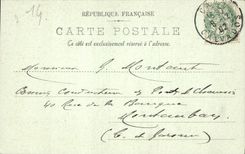 2 14
RÉPUBLIQUE FRANÇAISE
CARTE POSTALE
Ce côté est exclusivement réservé à l'adresse.
Monsieur J. Mordant
Conducteur des Ponts et Chaussées
40 Rue de la Banque
Montauban
(T. & Garonne)